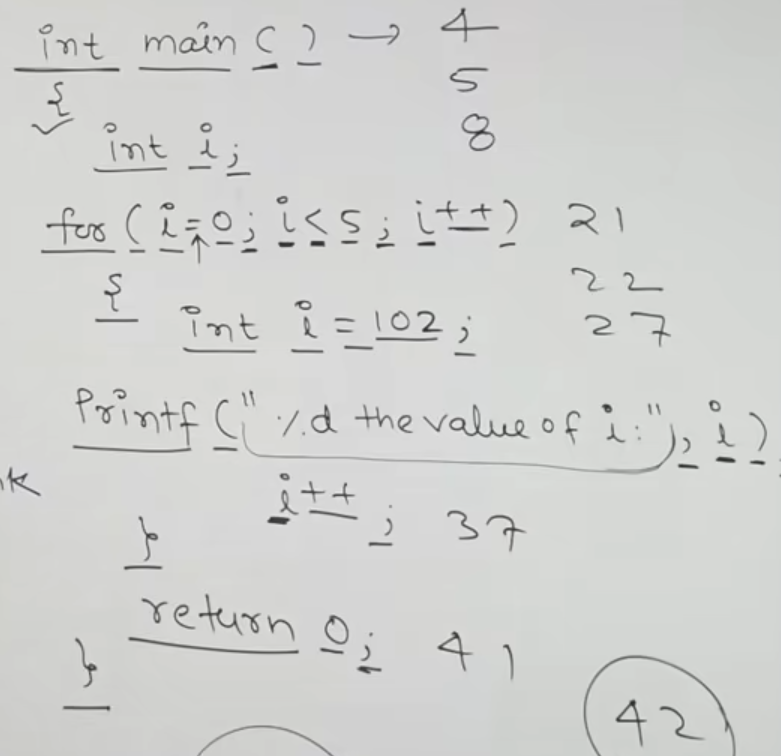 int main ( ) → 4
{ 5
int i; 8
for ( i=0; i<5; i++) 21
{ 22
int i = 102; 27
Printf ("%d the value of i:", i)
i++; 37
}
return 0; 41
}
42